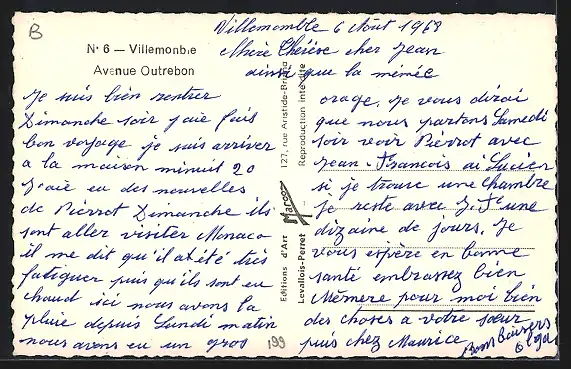 B
N° 6 — Villemonble
Avenue Outrebon
Villemomble 6 Aout 1968
Chère Thérèse cher Jean
ainsi que la mémée
Je suis bien rentrer
Dimanche soir j'aie fais
bon voyage je suis arriver
a la maison minuit 20
J'aie eu des nouvelles
de Pierrot Dimanche ils
sont aller visiter Monaco
il me dit qu'il a été très
fatiguer puis qu'ils sont eu
chaud ici nous avons la
pluie depuis Lundi matin
nous avons eu un gros
199
127, rue Aristide-Briand
Reproduction interdite
Editions d'Art
Levallois-Perret
orage, Je vous dirai
que nous partons Samedi
soir voir Pierrot avec
Jean-François ai Lucien
si je trouve une Chambre
je reste avec J. F une
dizaine de jours. Je
vous espère en bonne
santé embrassez bien
Mémere pour moi bien
des choses a votre sœur
puis chez Maurice
Bons Baisers
Olga